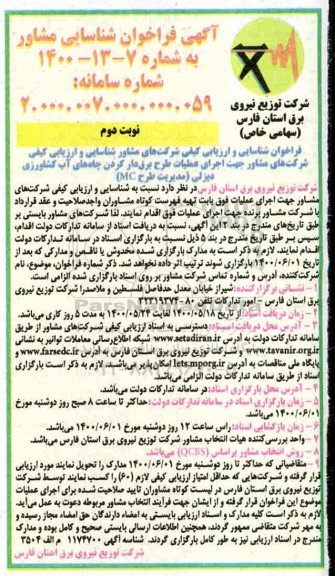 آگهی فراخوان شناسایی مشاور
به شماره ۷-۱۳-۱۴۰۰
شماره سامانه:
۲۰۰۰۰۰۷۰۰۰۰۰۰۰۵۹
نوبت دوم
شرکت توزیع نیروی
برق استان فارس
(سهامی خاص)
فراخوان شناسایی و ارزیابی کیفی شرکت‌های مشاور شناسایی و ارزیابی کیفی
شرکت‌های مشاور جهت اجرای عملیات طرح برق‌دار کردن چاه‌های آب کشاورزی
دیزلی (مدیریت طرح MC)
شرکت توزیع نیروی برق استان فارس در نظر دارد نسبت به شناسایی و ارزیابی کیفی شرکت‌های
مشاور جهت اجرای عملیات فوق بابت تهیه فهرست کوتاه مشاوران واجدصلاحیت و عقد قرارداد
با شرکت مشاور برنده جهت اجرای عملیات فوق اقدام نمایند. لذا شرکت‌های مشاور بایستی بر
طبق تاریخ‌های مندرج در بند ۲ این آگهی، نسبت به دریافت اسناد از سامانه تدارکات دولت اقدام،
سپس بر طبق تاریخ مندرج در بند ۵ ذیل نسبت به بارگزاری اسناد در سامانه تدارکات دولت
اقدام نمایند. لازم به ذکر است به مدارک بارگزاری شده مخدوش یا ناقص و مدارکی که بعد از
تاریخ ۱۴۰۰/۰۶/۰۱ بارگزاری شوند ترتیب اثر داده نخواهد شد. ذکر شماره فراخوان، موضوع، نام
شرکت‌کننده، آدرس و شماره تماس شرکت مشاور بر روی اسناد بارگزاری شده الزامی است.
۱- نشانی برگزار کننده: شیراز خیابان معدل حدفاصل فلسطین و ملاصدرا شرکت توزیع نیروی
برق استان فارس - امور تدارکات تلفن ۸۰-۳۲۳۱۹۳۷۴
۲- زمان دریافت اسناد: از تاریخ ۱۴۰۰/۰۵/۱۸ لغایت ۱۴۰۰/۰۵/۲۴ به مدت ۵ روز کاری می‌باشد.
۳- آدرس محل دریافت اسناد: دسترسی به اسناد ارزیابی کیفی شرکت‌های مشاور از طریق
سامانه تدارکات دولت به آدرس www.setadiran.ir شبکه اطلاع‌رسانی معاملات توانیر به نشانی
www.tavanir.org.ir و شرکت توزیع نیروی برق استان فارس به آدرس www.farsedc.ir و
پایگاه ملی مناقصات به آدرس iets.mporg.ir امکان‌پذیر می‌باشد. لازم به ذکر است بارگزاری
اسناد از طریق سامانه تدارکات دولت الزامی می‌باشد.
۴- آدرس محل بارگزاری اسناد: در سامانه تدارکات دولت می‌باشد.
۵- زمان بارگزاری اسناد در سامانه تدارکات دولت: حداکثر تا ساعت ۸ صبح روز دوشنبه مورخ
۱۴۰۰/۰۶/۰۱ می‌باشد.
۶- زمان بازگشایی اسناد: راس ساعت ۱۲ روز دوشنبه مورخ ۱۴۰۰/۰۶/۰۱ می‌باشد.
۷- واحد بررسی کننده هیات انتخاب مشاور شرکت توزیع نیروی برق استان فارس می‌باشد.
۸- روش انتخاب مشاور براساس (QCBS) می‌باشد.
۹- متقاضیانی که حداکثر تا روز دوشنبه مورخ ۱۴۰۰/۰۶/۰۱ مدارک را تحویل نمایند مورد ارزیابی
قرار گرفته و شرکت‌هایی که حداقل امتیاز ارزیابی کیفی لازم (۶۰) را کسب نمایند توسط شرکت
توزیع نیروی برق استان فارس در لیست کوتاه مشاوران تایید صلاحیت شده برای اجرای عملیات
موضوع این فراخوان قرار گرفته و از ایشان جهت فرآیند انتخاب مشاور مربوطه دعوت به عمل می‌آید.
لازم به ذکر است کلیه مدارک و اسناد ارزیابی بایستی به امضاء دارندگان حق امضاء مجاز رسیده و
به مهر شرکت متقاضی ممهور گردند. همچنین اطلاعات ارسالی بایستی صحیح و کامل بوده و مدارک
مندرج در اسناد ارزیابی نیز به طور کامل بارگزاری گردند. شناسه آگهی ۱۱۷۴۷۰۰ م الف ۳۵۰۴
شرکت توزیع نیروی برق استان فارس